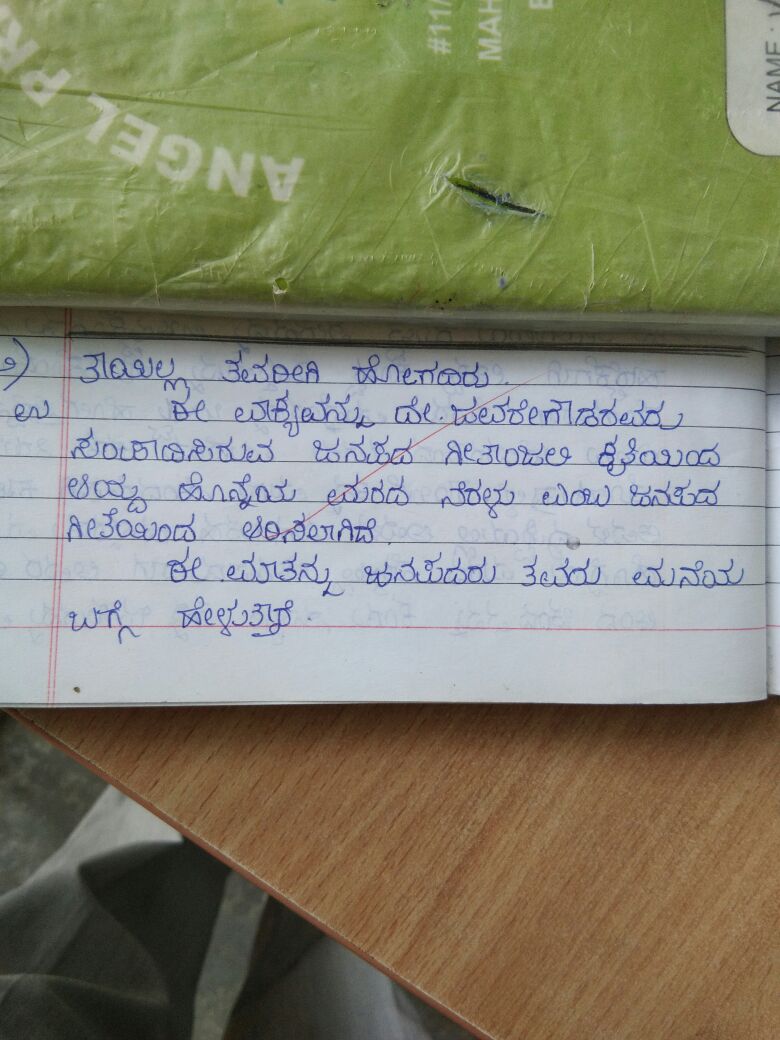 ANGEL PR
#11/
MAH
E
NAME :
೨) ತಾಯಿಲ್ಲ ತವರೀಗಿ ಹೋಗದಿರು.
ಉ ಈ ವಾಕ್ಯವನ್ನು ದೇ.ಜವರೇಗೌಡರವರು
ಸಂಪಾದಿಸಿರುವ ಜನಪದ ಗೀತಾಂಜಲಿ ಕೃತಿಯಿಂದ
ಆಯ್ದ ಹೊನ್ನೆಯ ಮರದ ನೆರಳು ಎಂಬ ಜನಪದ
ಗೀತೆಯಿಂದ ಆರಿಸಲಾಗಿದೆ.
ಈ ಮಾತನ್ನು ಜನಪದರು ತವರು ಮನೆಯ
ಬಗ್ಗೆ ಹೇಳುತ್ತಾರೆ.